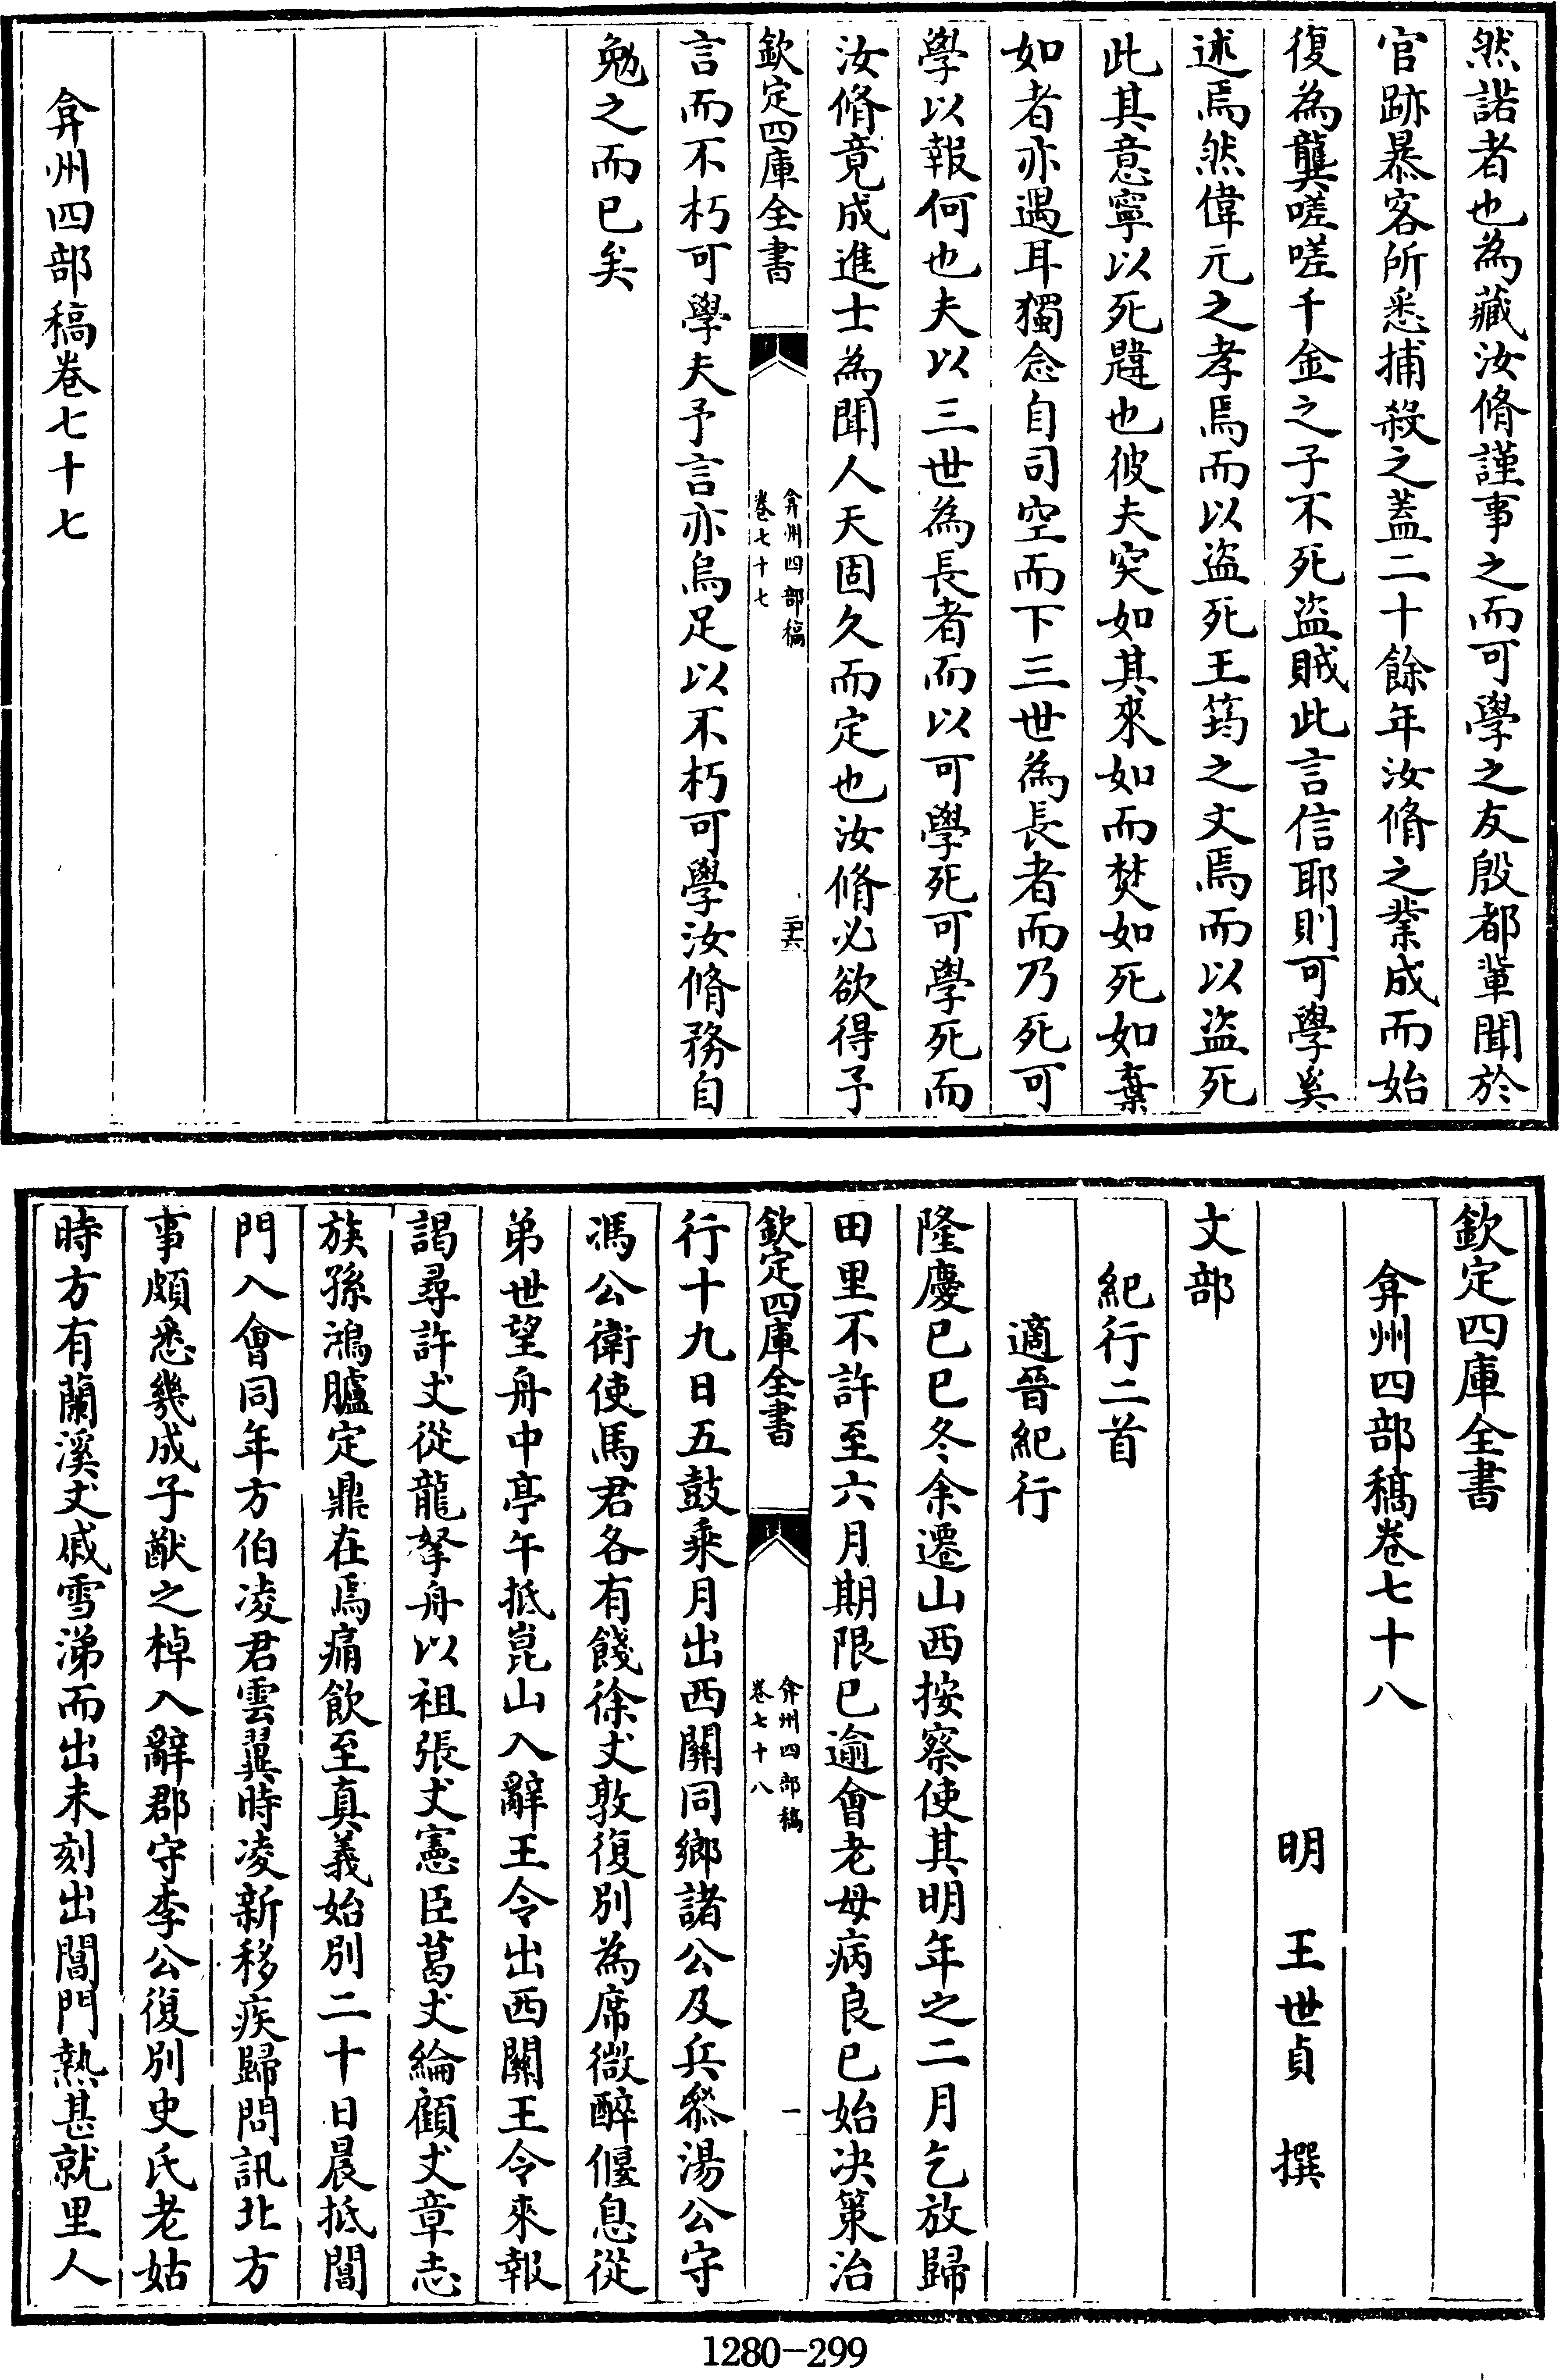 然諾者也為藏汝脩謹事之而可學之友殷都輩聞於
官跡暴客所悉捕殺之蓋二十餘年汝脩之業成而始
復為龔嗟嗟千金之子不死盜賊此言信耶則可學奚
述焉然偉元之孝焉而以盜死王筠之文焉而以盜死
此其意寧以死韙也彼夫突如其來如而焚如死如棄
如者亦遇耳獨念自司空而下三世為長者而乃死可
學以報何也夫以三世為長者而以可學死可學死而
汝脩竟成進士為聞人天固久而定也汝脩必欲得予
欽定四庫全書
弇州四部稿
卷七十七
二十六
言而不朽可學夫予言亦烏足以不朽可學汝脩務自
勉之而已矣
弇州四部稿卷七十七
欽定四庫全書
弇州四部稿卷七十八
明 王世貞 撰
文部
紀行二首
適晉紀行
隆慶己巳冬余遷山西按察使其明年之二月乞放歸
田里不許至六月期限已逾會老母病良已始决策治
欽定四庫全書
弇州四部稿
卷七十八
一
行十九日五鼓乘月出西關同鄉諸公及兵叅湯公守
馮公衛使馬君各有餞徐丈敦復别為席微醉偃息從
弟世望舟中亭午抵崑山入辭王令出西關王令來報
謁尋許丈從龍拏舟以祖張丈憲臣葛丈綸顧丈章志
族孫鴻臚定鼎在焉痛飲至真義始别二十日晨抵閶
門入會同年方伯凌君雲翼時凌新移疾歸問訊北方
事頗悉幾成子猷之棹入辭郡守李公復别史氏老姑
時方有蘭溪丈戚雪涕而出未刻出閶門熱甚就里人
1280-299